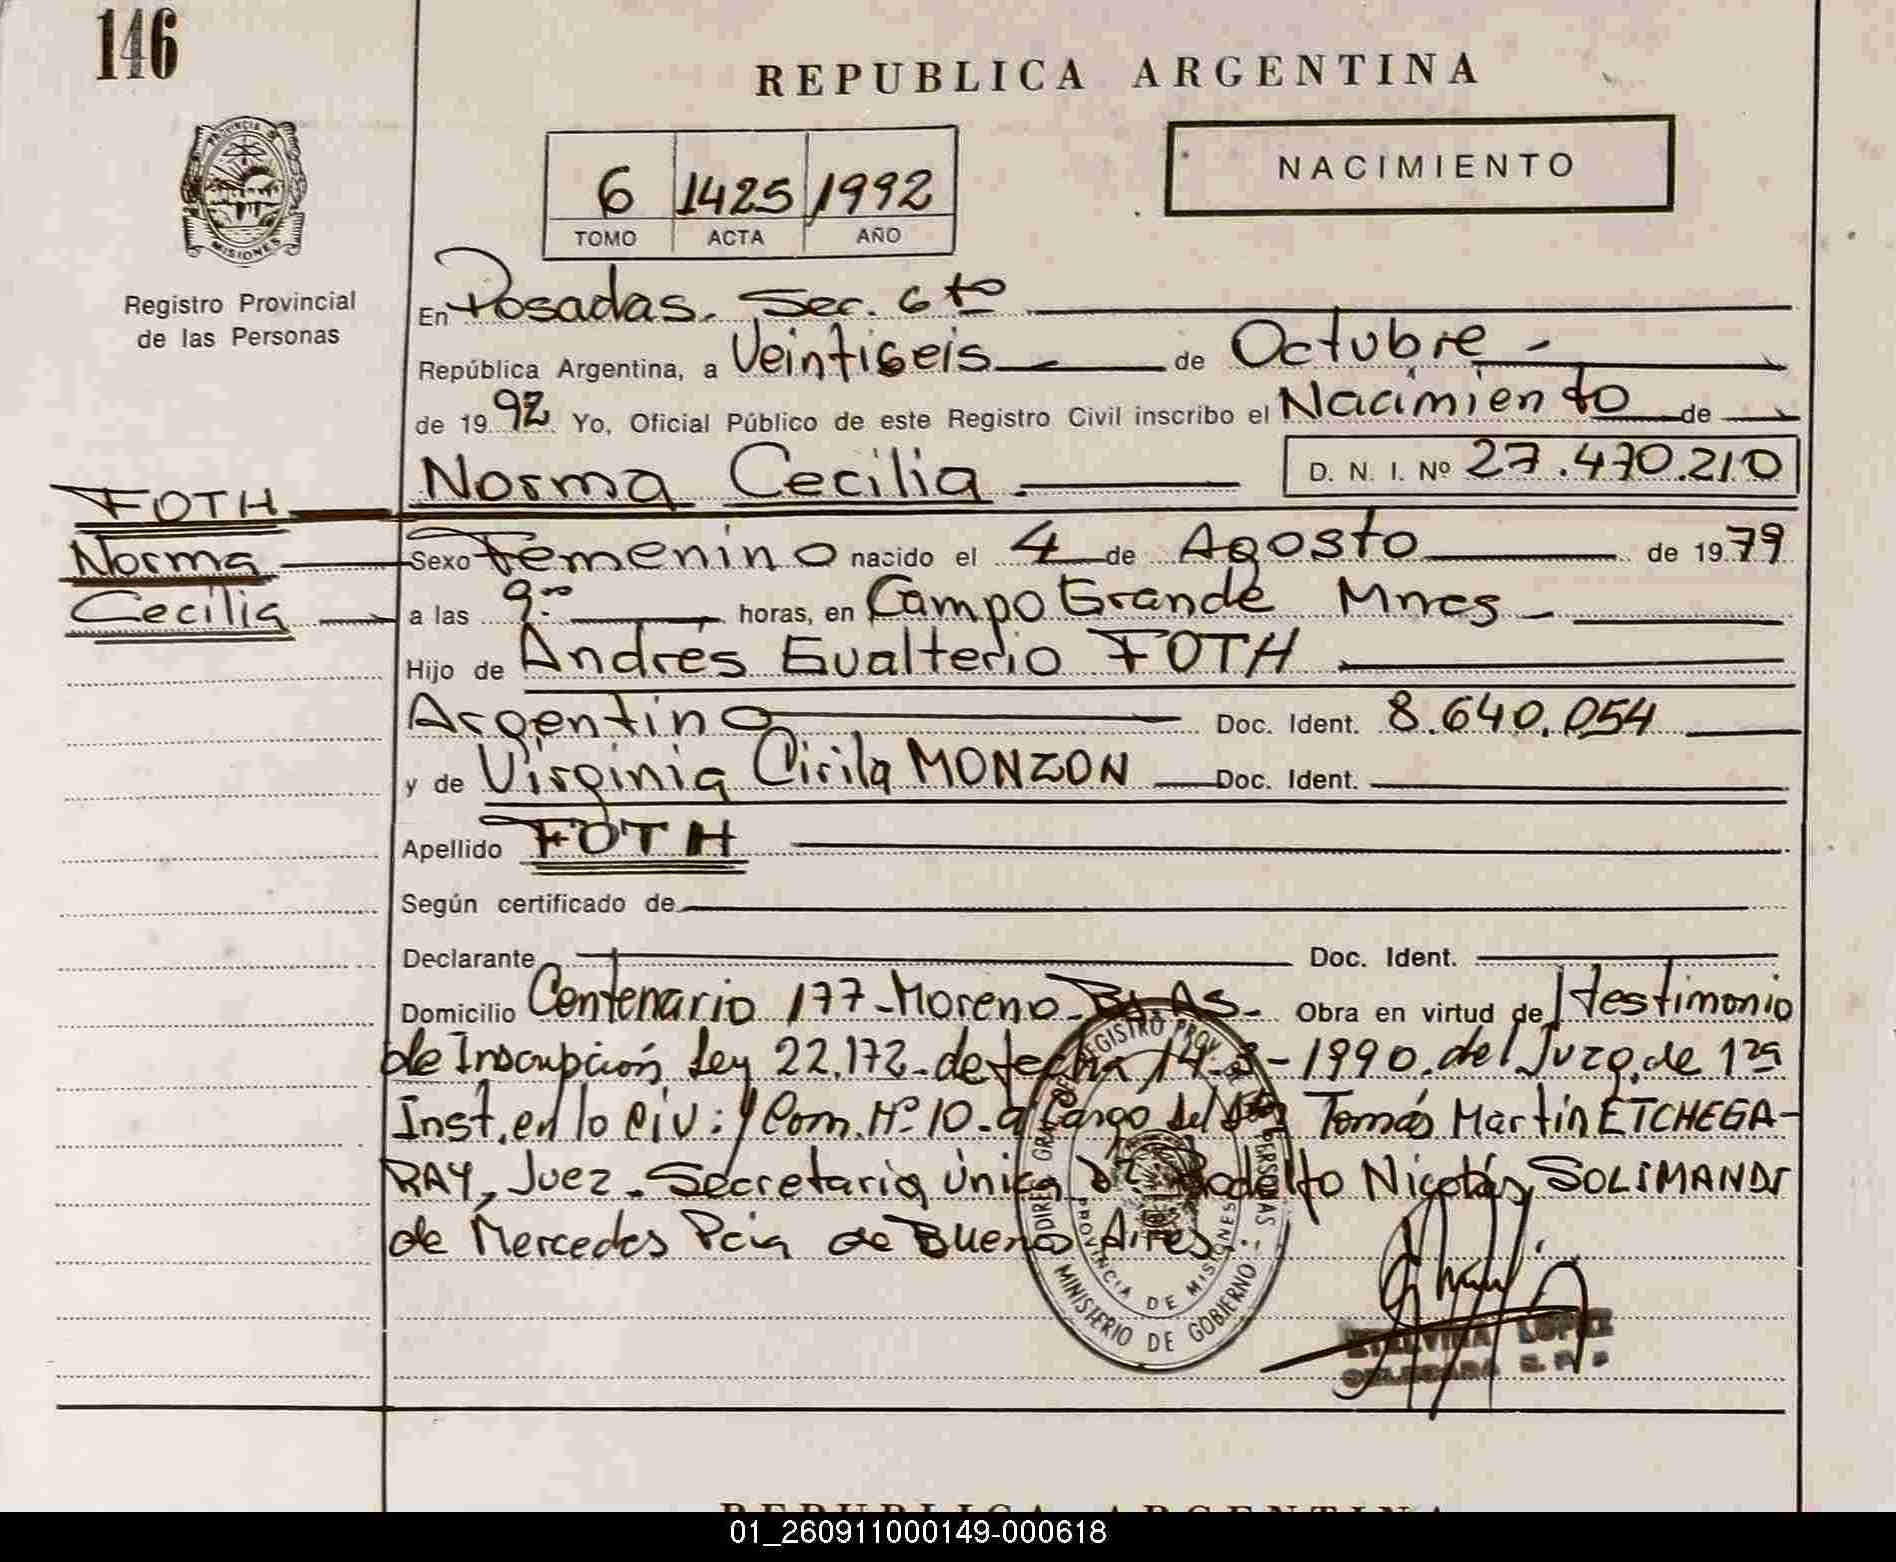 146
REPUBLICA ARGENTINA
NACIMIENTO
PROVINCIA DE
MISIONES
6 1425 1992
TOMO ACTA AÑO
Registro Provincial
de las Personas
En Posadas. Sec. 6to
República Argentina, a Veintiseis de Octubre -
de 19 92 Yo, Oficial Público de este Registro Civil inscribo el Nacimiento de
Norma Cecilia. D. N. I. Nº 27.470.210
FOTH
Norma
Cecilia
Sexo Femenino nacido el 4 de Agosto de 19 79
a las 9.00 horas, en Campo Grande Mnes -
Hijo de Andrés Gualterio FOTH
Argentino Doc. Ident. 8.640.054
y de Virginia Cirila MONZON Doc. Ident.
Apellido FOTH
Según certificado de
Declarante Doc. Ident.
Domicilio Centenario 177 - Moreno - Bs As. Obra en virtud de testimonio
de Inscripción Ley 22.172 - de fecha 14- -1990. del Juzg. de 1ra
Inst. en lo Civ. y Com. Nº 10 - a Cargo del Tomás Martín ETCHEGA-
RAY, Juez. Secretaria única Dr Rodolfo Nicolás SOLIMANDI
de Mercedes Pcia de Buenos Aires.
REGISTRO PROV. DE LAS PERSONAS
MINISTERIO DE GOBIERNO
PROVINCIA DE MISIONES
ETELVINA LOPEZ
REPUBLICA ARGENTINA
01_260911000149-000618